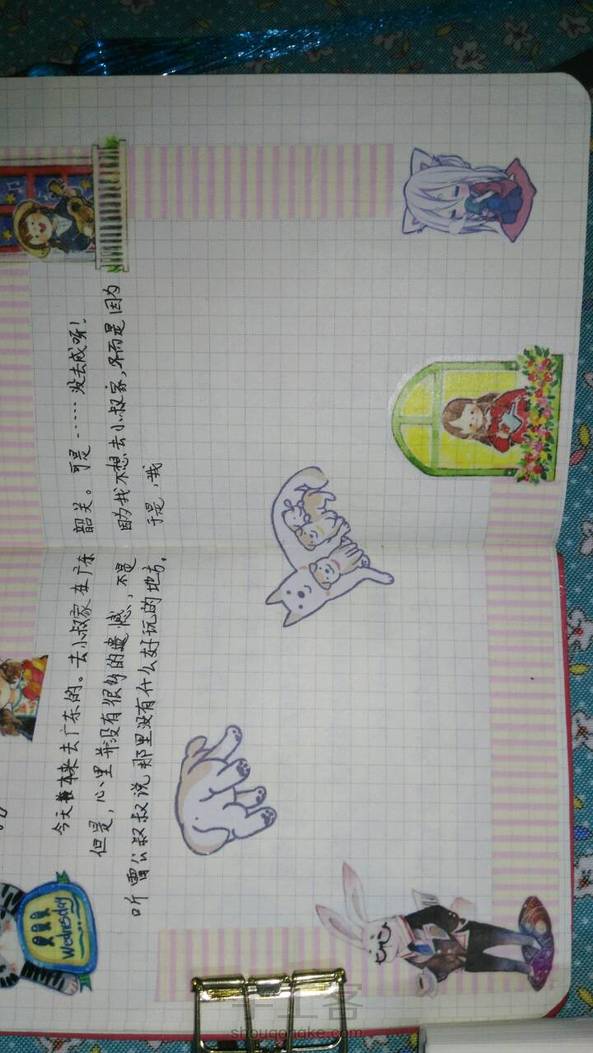 今天本来去广东的。去小叔家在广东韶关。可是……没去成呀!
但是,心里并没有很多的遗憾,不是因为我不想去小叔家,而是因为
听雷公叔叔说那里没有什么好玩的地方。于是,我
Wednesday
手工客
shougongke.com